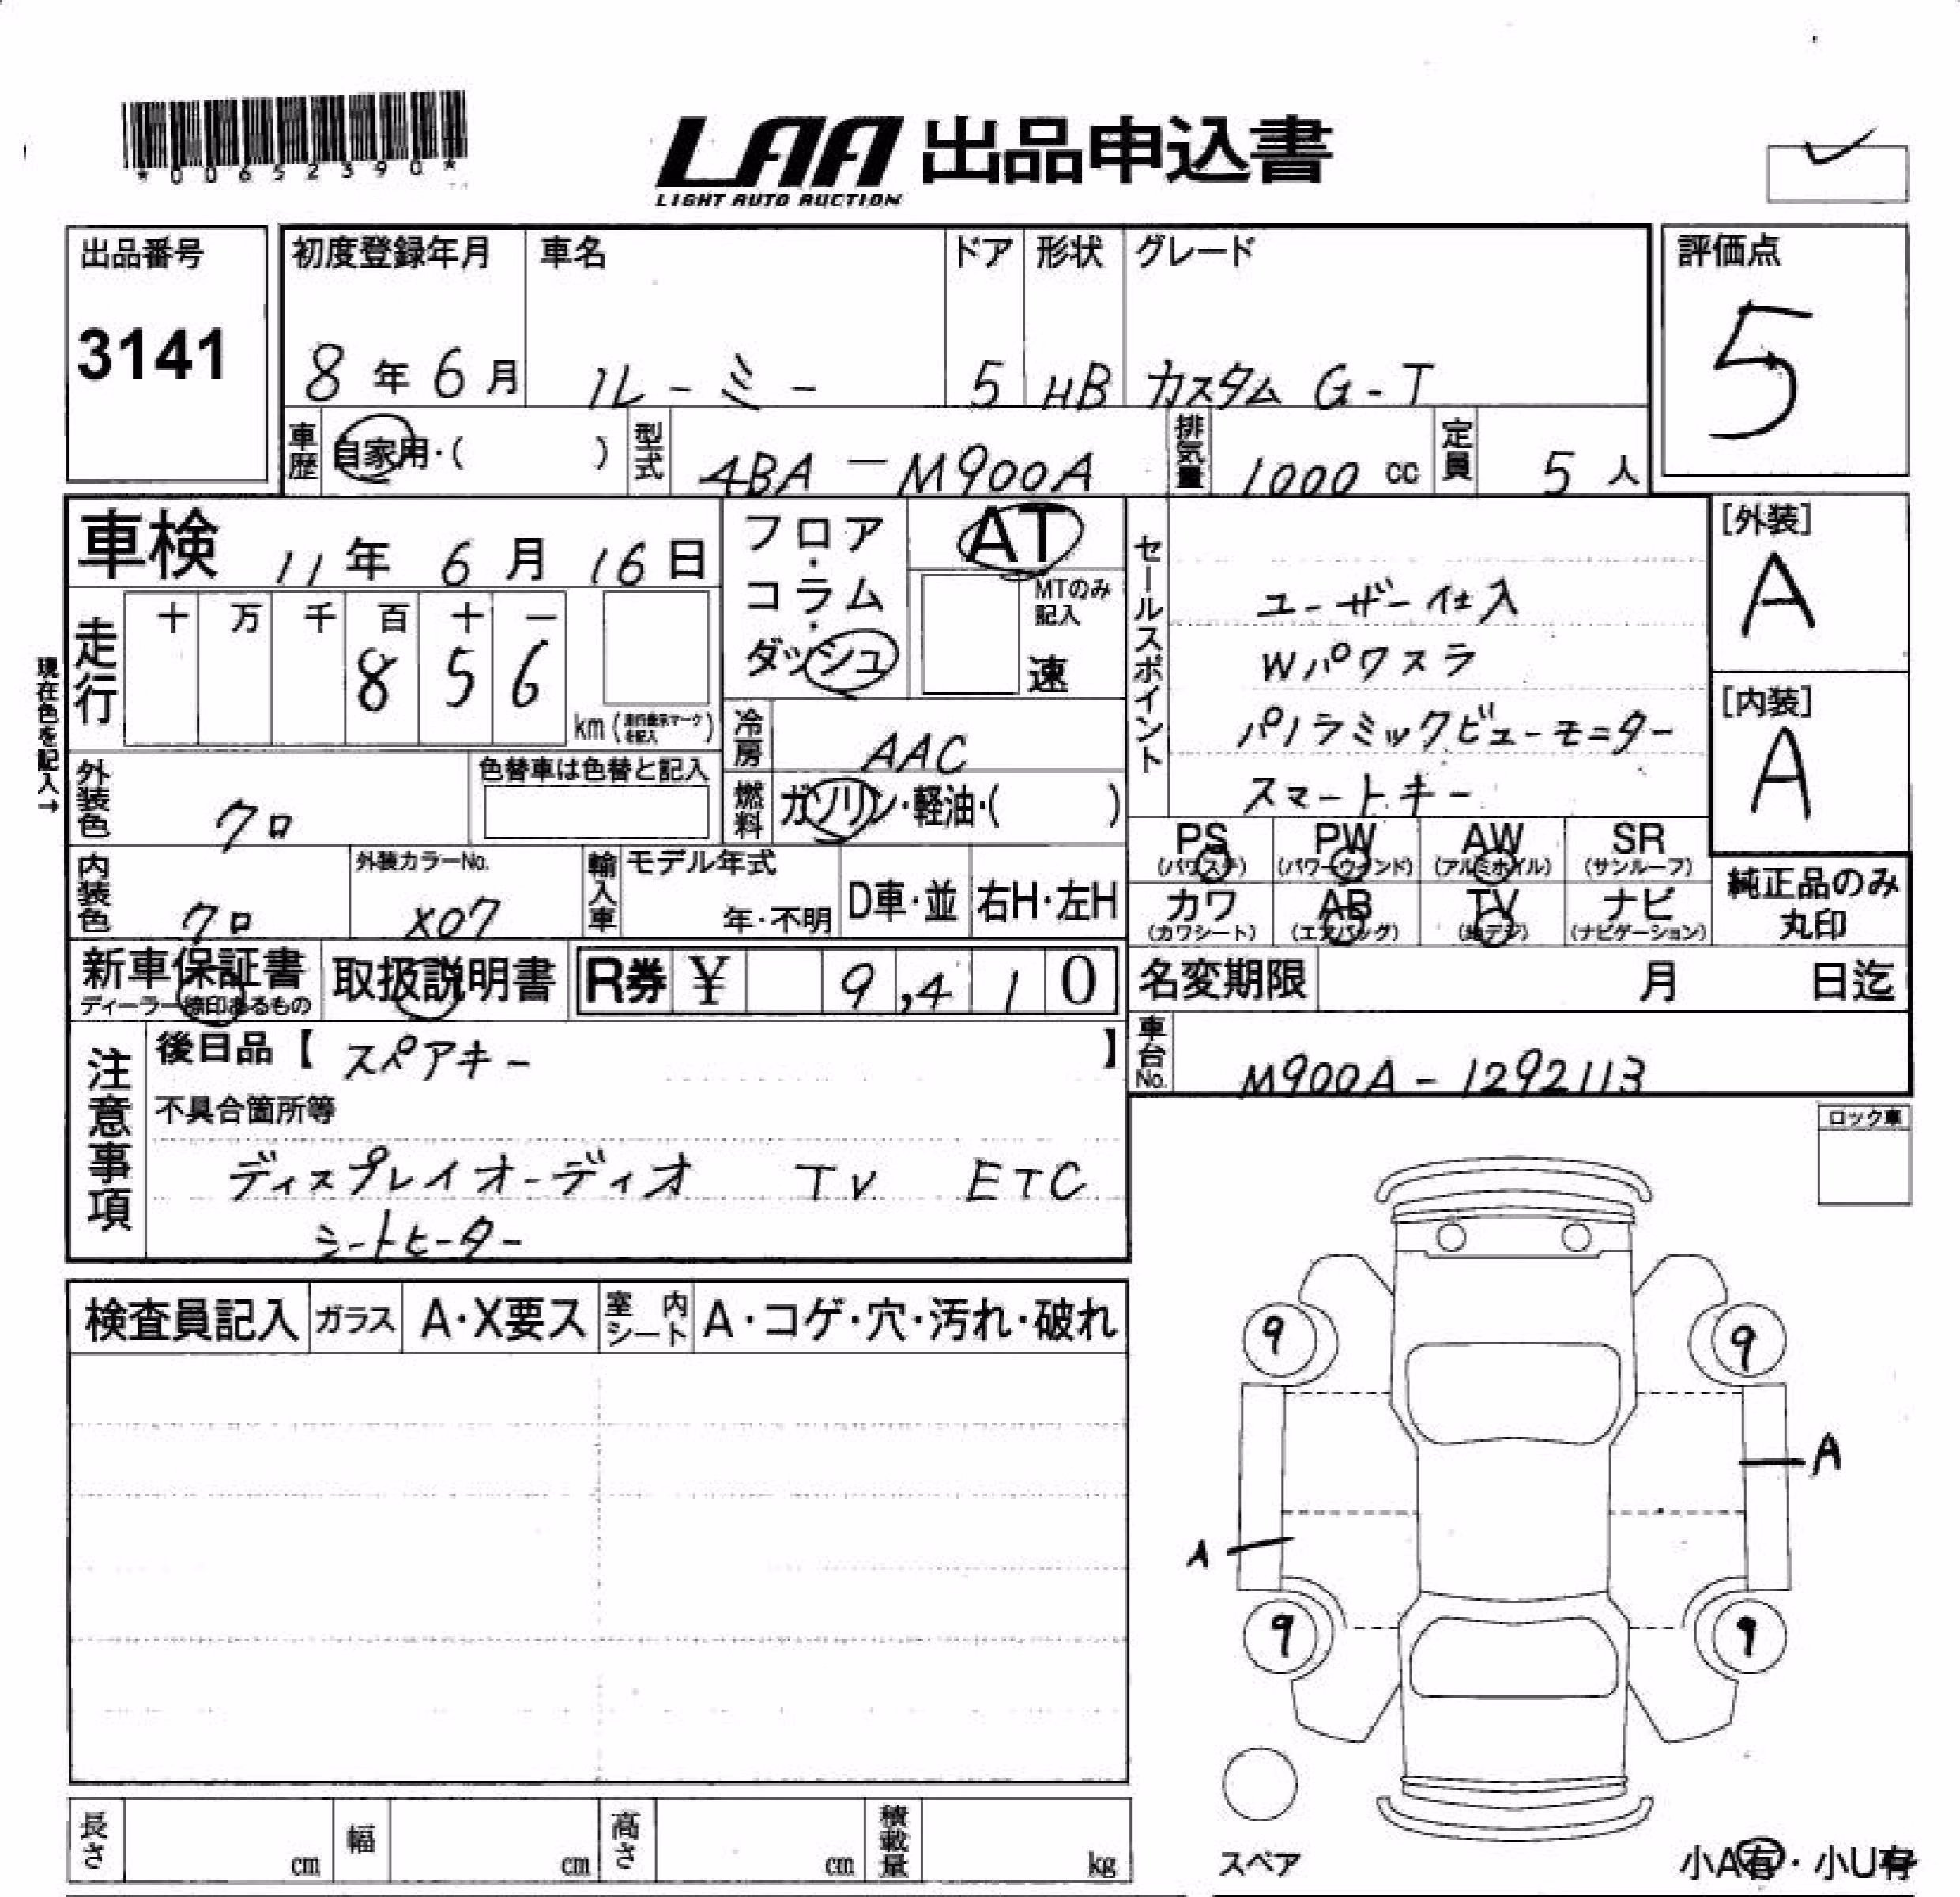 *00652390*
LAA 出品申込書
LIGHT AUTO AUCTION
出品番号
3141
初度登録年月
8年6月
車名
ルーミー
ドア
5
形状
HB
グレード
カスタム G-T
評価点
5
車歴
自家用・( )
型式
4BA-M900A
排気量
1000 cc
定員
5人
車検 11年 6月 16日
フロア・コラム・ダッシュ
AT
MTのみ記入
速
セールスポイント
ユーザー仕入
Wパワスラ
パノラミックビューモニター
スマートキー
[外装]
A
[内装]
A
現在色を記入→
走行
十 万 千 百 十 一
8 5 6
km
冷房
AAC
燃料
ガソリン・軽油・( )
外装色
クロ
色替車は色替と記入
内装色
クロ
外装カラーNo.
X07
輸入車
モデル年式
年・不明
D車・並
右H・左H
PS (パワステ)
PW (パワーウィンド)
AW (アルミホイル)
SR (サンルーフ)
カワ (カワシート)
AB (エアバッグ)
TV (地デジ)
ナビ (ナビゲーション)
純正品のみ丸印
新車保証書
ディーラー捺印あるもの
取扱説明書
R券 ¥ 9,410
名変期限 月 日迄
車台No.
M900A-1292113
注意事項
後日品【スペアキー】
不具合箇所等
ディスプレイオーディオ TV ETC
シートヒーター
ロック車
検査員記入
ガラス
A・X要ス
室内シート
A・コゲ・穴・汚れ・破れ
9 9
A
A
9 9
スペア
小A有・小U有
長さ cm
幅 cm
高さ cm
積載量 kg